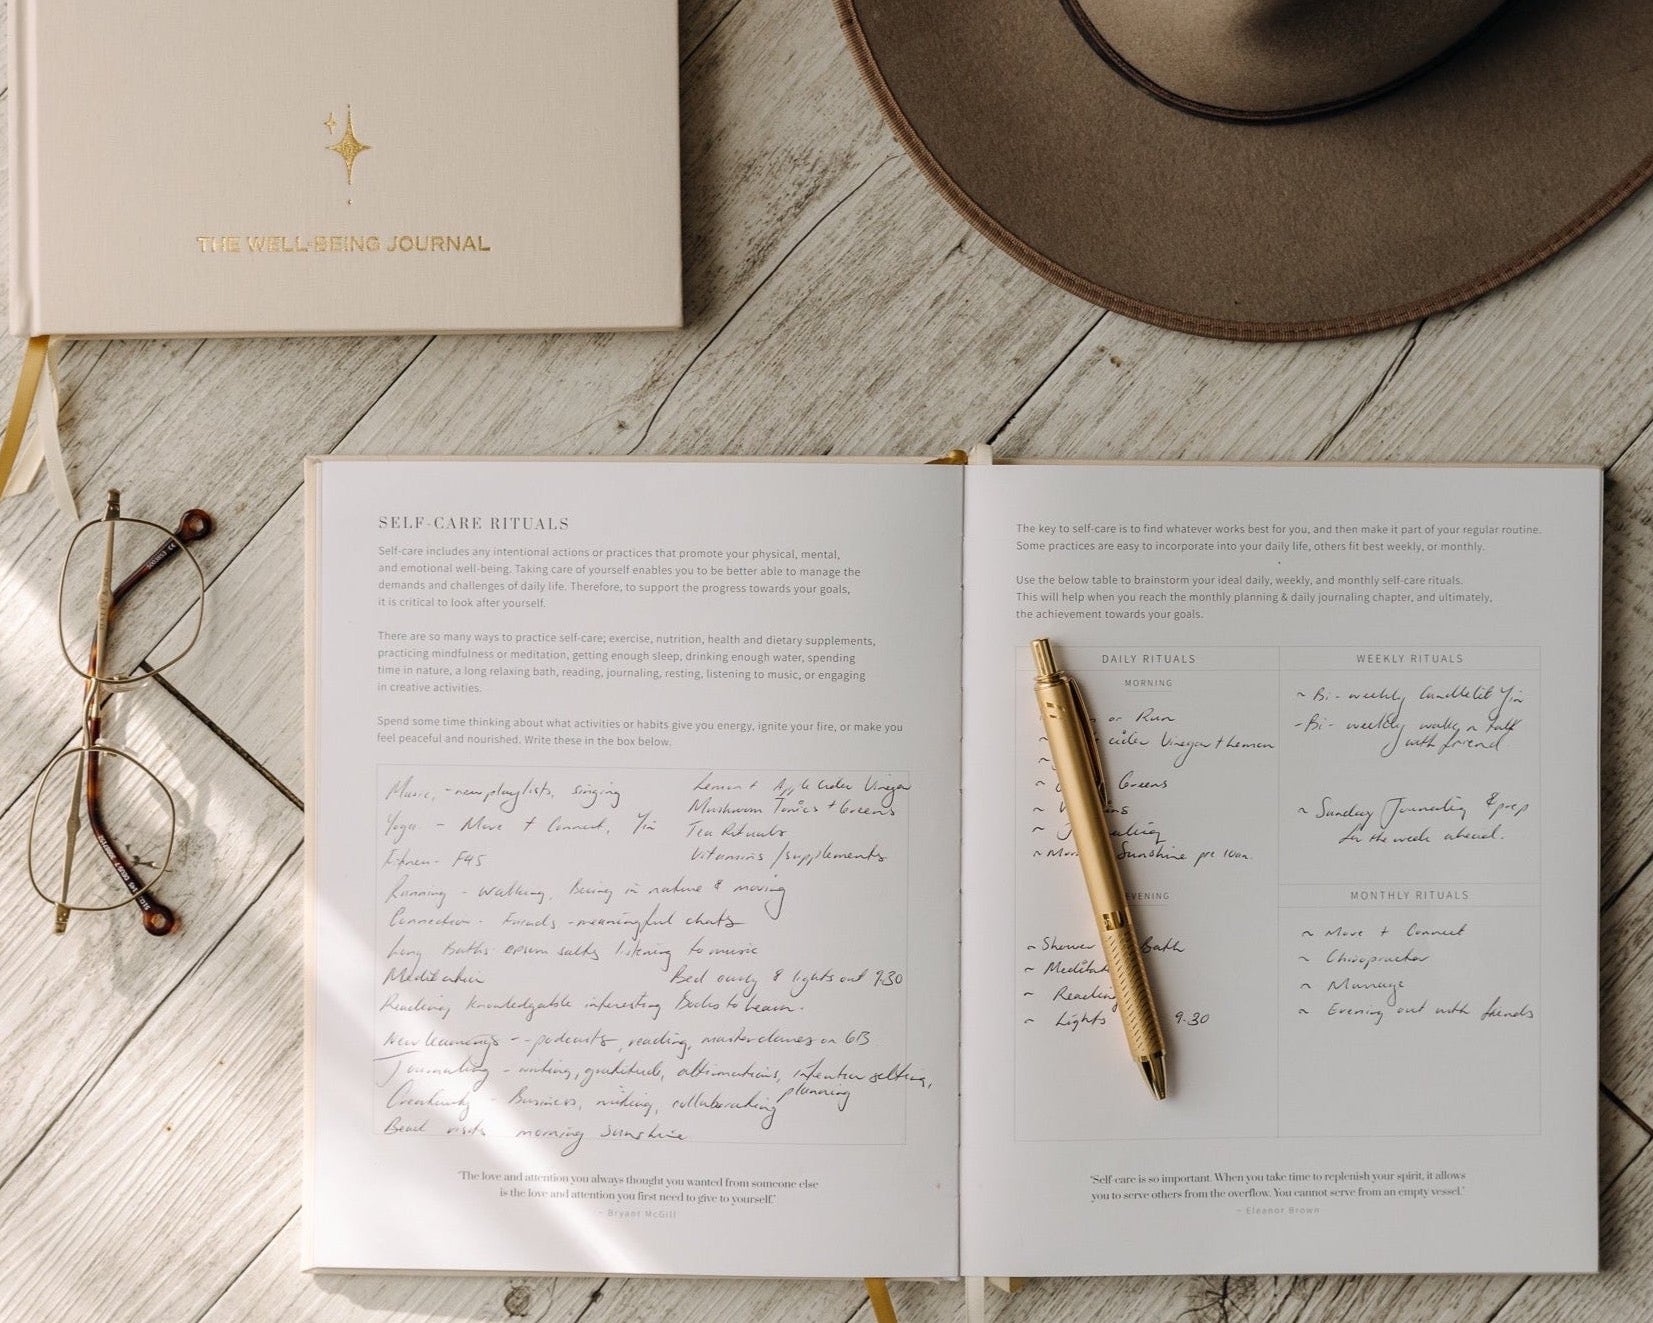 THE WELL-BEING JOURNAL
SELF-CARE RITUALS
Self-care includes any intentional actions or practices that promote your physical, mental,
and emotional well-being. Taking care of yourself enables you to be better able to manage the
demands and challenges of daily life. Therefore, to support the progress towards your goals,
it is critical to look after yourself.
There are so many ways to practice self-care; exercise, nutrition, health and dietary supplements,
practicing mindfulness or meditation, getting enough sleep, drinking enough water, spending
time in nature, a long relaxing bath, reading, journaling, resting, listening to music, or engaging
in creative activities.
Spend some time thinking about what activities or habits give you energy, ignite your fire, or make you
feel peaceful and nourished. Write these in the box below.
Music, - new playlists, singing
Yoga - Move + Connect, Yin
Fitness - F45
Running - walking, Being in nature & moving
Connection - Friends - meaningful chats
Long Baths epsom salts listening to music
Meditation
Reading knowledgable interesting Books to learn.
New learnings -- podcasts, reading, masterclasses on
Journaling - writing, gratitude, affirmations, intention setting,
planning
Creativity - Business, writing, collaborating
visits morning sunshine
Lemon + Apple Cider Vinegar
Mushroom Tonics + Greens
Tea Rituals
Vitamins / supplements
Bed early & lights out 9.30
"The love and attention you always thought you wanted from someone else
is the love and attention you first need to give to yourself."
~ Bryant McGill
The key to self-care is to find whatever works best for you, and then make it part of your regular routine.
Some practices are easy to incorporate into your daily life, others fit best weekly, or monthly.
Use the below table to brainstorm your ideal daily, weekly, and monthly self-care rituals.
This will help when you reach the monthly planning & daily journaling chapter, and ultimately,
the achievement towards your goals.
DAILY RITUALS
MORNING
or Run
cider Vinegar + Lemon
Greens
~ Sunshine pre 10am.
EVENING
~ Shower Bath
~
~ Reading
~ Lights 9.30
WEEKLY RITUALS
~ Bi-weekly Candlelit Yin
- Bi-weekly walk n talk
with friend
~ Sunday Journaling & prep
for the week ahead.
MONTHLY RITUALS
~ Move + Connect
~ Chiropractor
~ Massage
~ Evening out with friends
"Self-care is so important. When you take time to replenish your spirit, it allows
you to serve others from the overflow. You cannot serve from an empty vessel."
~ Eleanor Brown